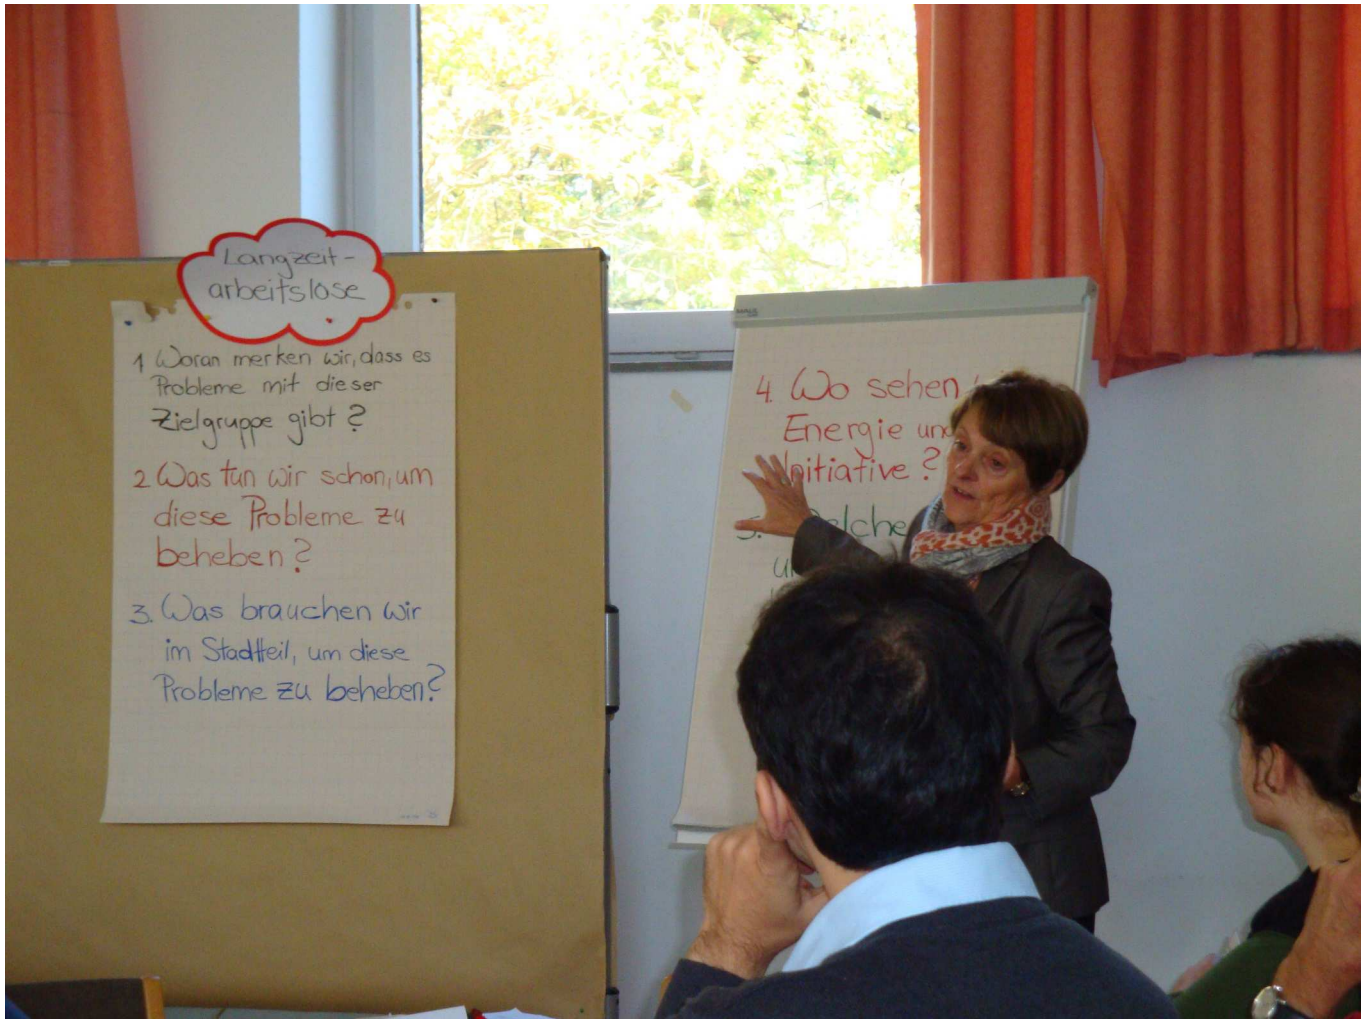 Langzeit-
arbeitslose
1 Woran merken wir, dass es
Probleme mit dieser
Zielgruppe gibt?
2 Was tun wir schon, um
diese Probleme zu
beheben?
3. Was brauchen wir
im Stadtteil, um diese
Probleme zu beheben?
4. Wo sehen
Energie und
Initiative?
5. Welche